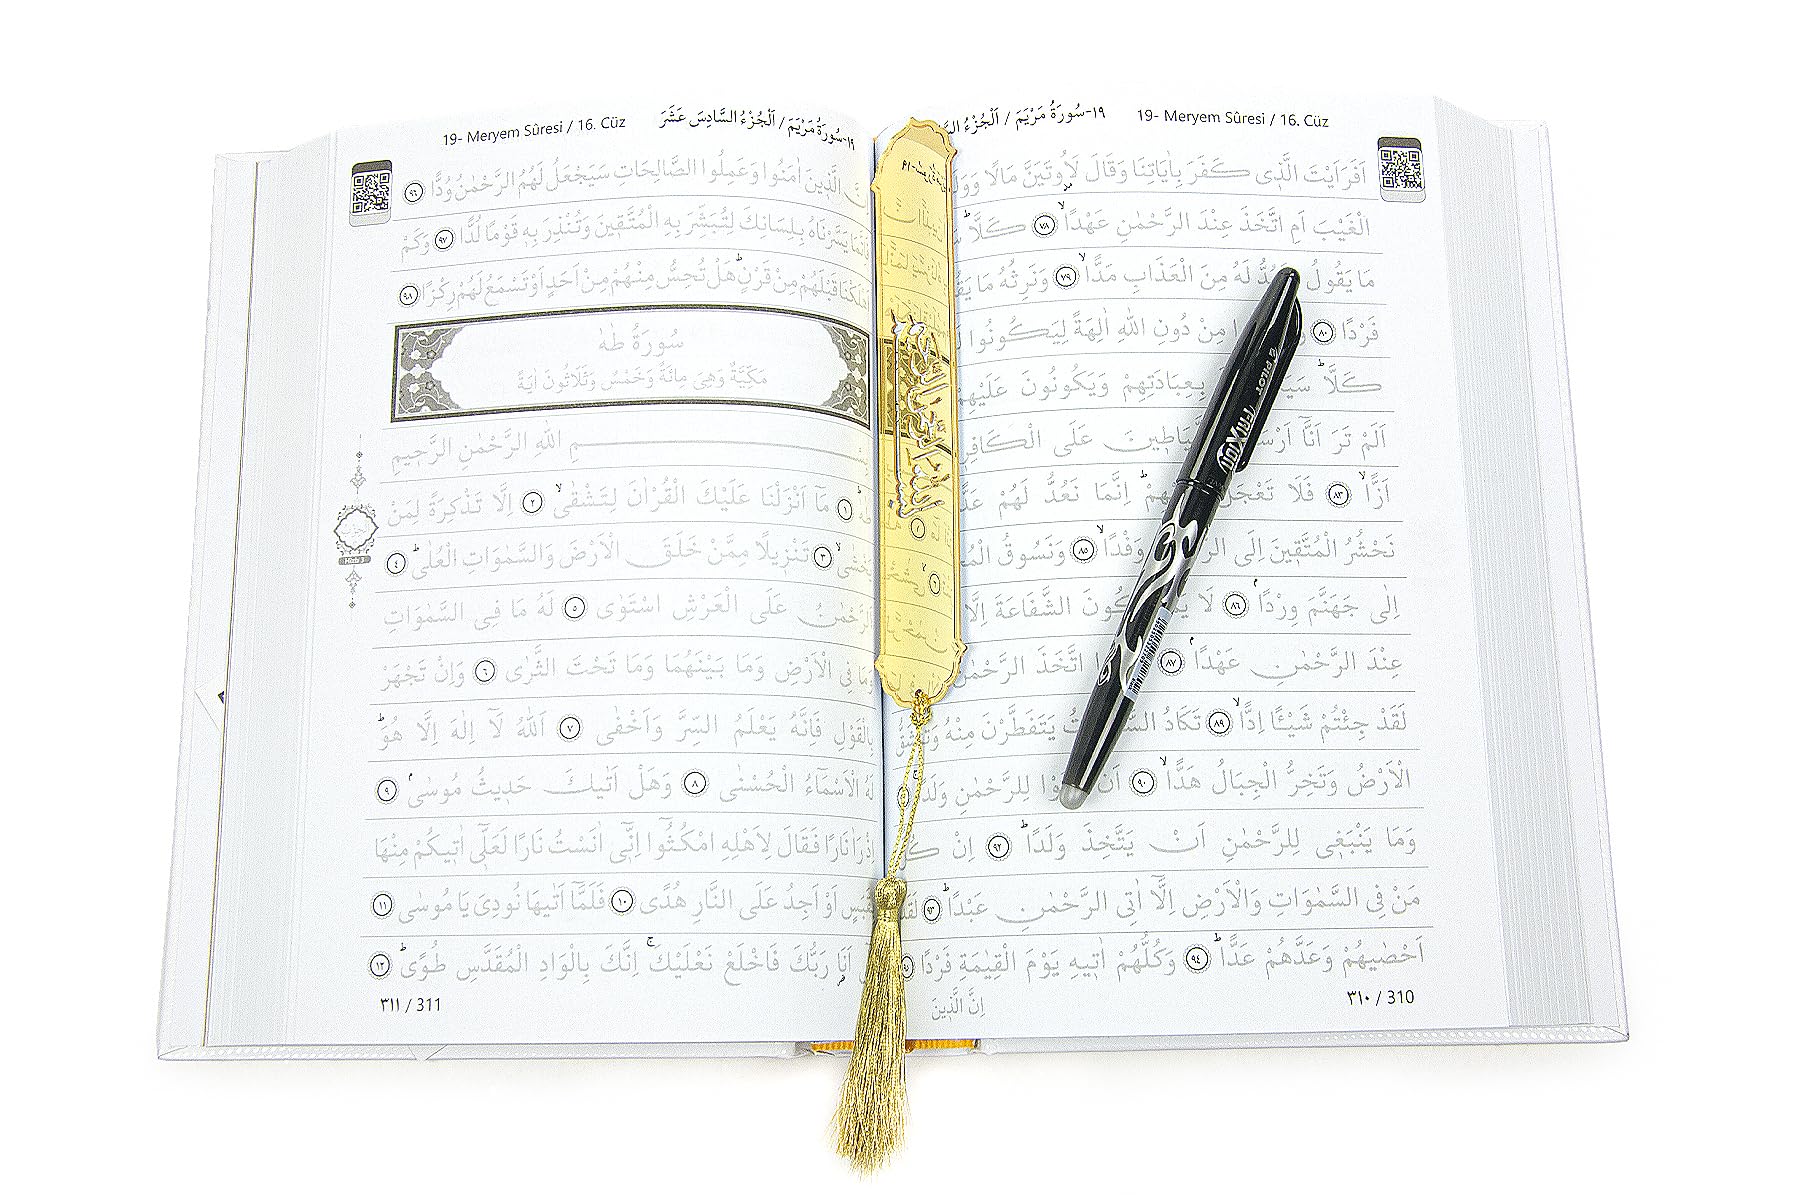 ١٩-سُورَةُ مَرْيَمَ / اَلْجُزْءُ 19- Meryem Sûresi / 16. Cüz
اَفَرَاَيْتَ الَّذ۪ي كَفَرَ بِاٰيَاتِنَا وَقَالَ لَاُو۫تَيَنَّ مَالًا
الْغَيْبَ اَمِ اتَّخَذَ عِنْدَ الرَّحْمٰنِ عَهْدًاۙ ٧٨ كَلَّاۜ
مَا يَقُولُ لَهُ مِنَ الْعَذَابِ مَدًّاۙ ٧٩ وَنَرِثُهُ مَا
فَرْدًا ٨٠ مِنْ دُونِ اللّٰهِ اٰلِهَةً لِيَكُونُوا
كَلَّاۜ بِعِبَادَتِهِمْ وَيَكُونُونَ عَلَيْهِمْ
اَلَمْ تَرَ اَنَّٓا عَلَى
اَزًّاۙ ٨٣ فَلَا اِنَّمَا نَعُدُّ لَهُمْ
نَحْشُرُ الْمُتَّق۪ينَ اِلَى وَفْدًاۙ ٨٥ وَنَسُوقُ
اِلٰى جَهَنَّمَ وِرْدًاۢ ٨٦ لَا الشَّفَاعَةَ اِلَّا
عِنْدَ الرَّحْمٰنِ عَهْدًاۢ ٨٧ اتَّخَذَ
لَقَدْ جِئْتُمْ شَيْـًٔا اِدًّاۙ ٨٩ تَكَادُ يَتَفَطَّرْنَ مِنْهُ
الْاَرْضُ وَتَخِرُّ الْجِبَالُ هَدًّاۙ ٩٠ اَنْ لِلرَّحْمٰنِ
وَمَا يَنْبَغ۪ي لِلرَّحْمٰنِ اَنْ يَتَّخِذَ وَلَدًاۜ ٩٢ اِنْ
مَنْ فِي السَّمٰوَاتِ وَالْاَرْضِ اِلَّٓا اٰتِي الرَّحْمٰنِ عَبْدًاۜ ٩٣
اَحْصٰيهُمْ وَعَدَّهُمْ عَدًّاۜ ٩٤ وَكُلُّهُمْ اٰت۪يهِ يَوْمَ الْقِيٰمَةِ فَرْدًا
٣١٠ / 310
اِنَّ الَّذ۪ينَ
PILOT
FRIXION
١٩-سُورَةُ مَرْيَمَ / اَلْجُزْءُ السَّادِسَ عَشَرَ 19- Meryem Sûresi / 16. Cüz
الَّذ۪ينَ اٰمَنُوا وَعَمِلُوا الصَّالِحَاتِ سَيَجْعَلُ لَهُمُ الرَّحْمٰنُ وُدًّا ٩٦
يَسَّرْنَاهُ بِلِسَانِكَ لِتُبَشِّرَ بِهِ الْمُتَّق۪ينَ وَتُنْذِرَ بِه۪ قَوْمًا لُدًّا ٩٧ وَكَمْ
قَبْلَهُمْ مِنْ قَرْنٍۜ هَلْ تُحِسُّ مِنْهُمْ مِنْ اَحَدٍ اَوْ تَسْمَعُ لَهُمْ رِكْزًا ٩٨
سُورَةُ طٰهٰ
مَكِّيَّةٌ وَهِيَ مِائَةٌ وَخَمْسٌ وَثَلَاثُونَ اٰيَةً
بِسْمِ اللّٰهِ الرَّحْمٰنِ الرَّح۪يمِ
١ مَٓا اَنْزَلْنَا عَلَيْكَ الْقُرْاٰنَ لِتَشْقٰىۙ ٢ اِلَّا تَذْكِرَةً لِمَنْ
يَخْشٰىۙ ٣ تَنْز۪يلًا مِمَّنْ خَلَقَ الْاَرْضَ وَالسَّمٰوَاتِ الْعُلٰىۜ ٤
اَلرَّحْمٰنُ عَلَى الْعَرْشِ اسْتَوٰى ٥ لَهُ مَا فِي السَّمٰوَاتِ
وَمَا فِي الْاَرْضِ وَمَا بَيْنَهُمَا وَمَا تَحْتَ الثَّرٰى ٦ وَاِنْ تَجْهَرْ
بِالْقَوْلِ فَاِنَّهُ يَعْلَمُ السِّرَّ وَاَخْفٰى ٧ اَللّٰهُ لَٓا اِلٰهَ اِلَّا هُوَۜ
لَهُ الْاَسْمَٓاءُ الْحُسْنٰى ٨ وَهَلْ اَتٰيكَ حَد۪يثُ مُوسٰىۢ ٩
نَارًا فَقَالَ لِاَهْلِهِ امْكُثُٓوا اِنّ۪ٓي اٰنَسْتُ نَارًا لَعَلّ۪ٓي اٰت۪يكُمْ مِنْهَا
بِقَبَسٍ اَوْ اَجِدُ عَلَى النَّارِ هُدًى ١٠ فَلَمَّٓا اَتٰيهَا نُودِيَ يَا مُوسٰى ١١
اَنَا۬ رَبُّكَ فَاخْلَعْ نَعْلَيْكَۚ اِنَّكَ بِالْوَادِ الْمُقَدَّسِ طُوًىۜ ١٢
٣١١ / 311